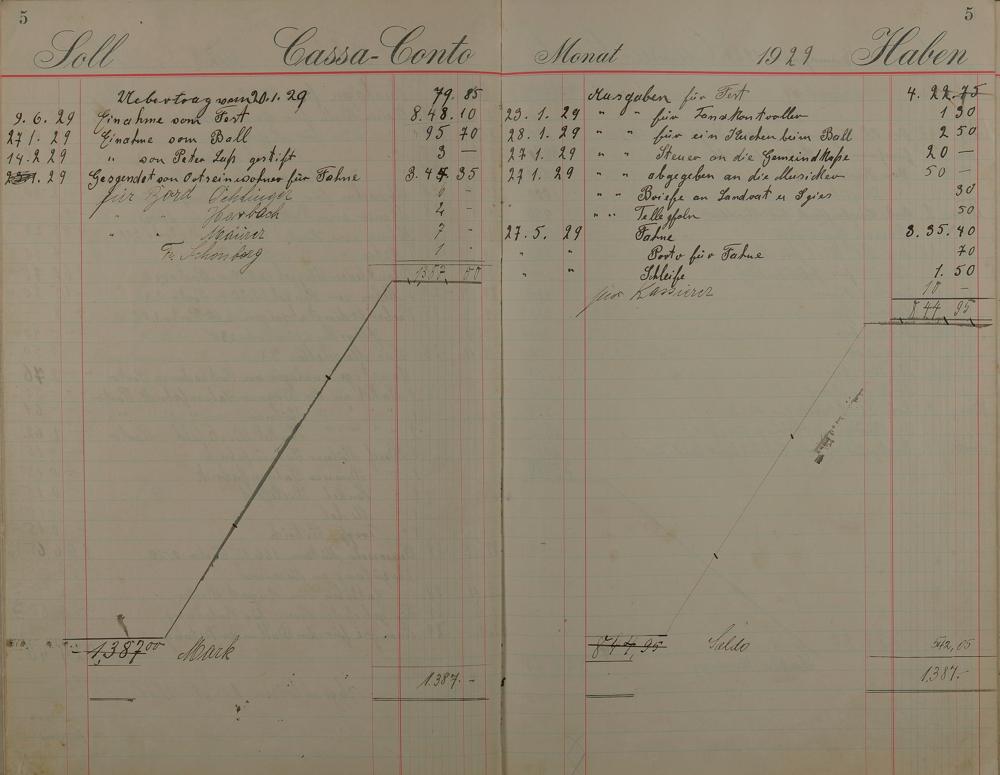 5
Soll Cassa-Conto
Uebertrag vom 20.1.29 79. 85
9. 6. 29 Einahme vom Fest 8.48.10
27 1. 29 Einahme vom Ball 95 70
14. 2 29 " von Peter Laß gestift 3 —
1. 29 Gespendet von Ortseinwohner für Fahne 3. 45 35
für Bord Oehlinger 6 -
" " Herbach 2 -
" " Maurer 7 -
Fr. Schomberg 1 -
1387 00
- 1,387 00 Mark
1387 -
5
Monat 1929 Haben
Ausgaben für Fest 4. 22.75
23. 1. 29 " " für Tanzkontroller 1 30
28. 1. 29 " " für ein Kuchen beim Ball 2 50
27 1. 29 " " Steuer an die Gemeindkaße 20 —
27 1. 29 " " abgegeben an die Musicker 50 —
" " Briefe an Landrat u 30
" " 50
27. 5. 29 Fahne 3. 35. 40
" " Porto für Fahne 70
" " Schleife 1. 50
für Kassierer 10 -
844 95
844,95 Saldo 542,05
1387.-